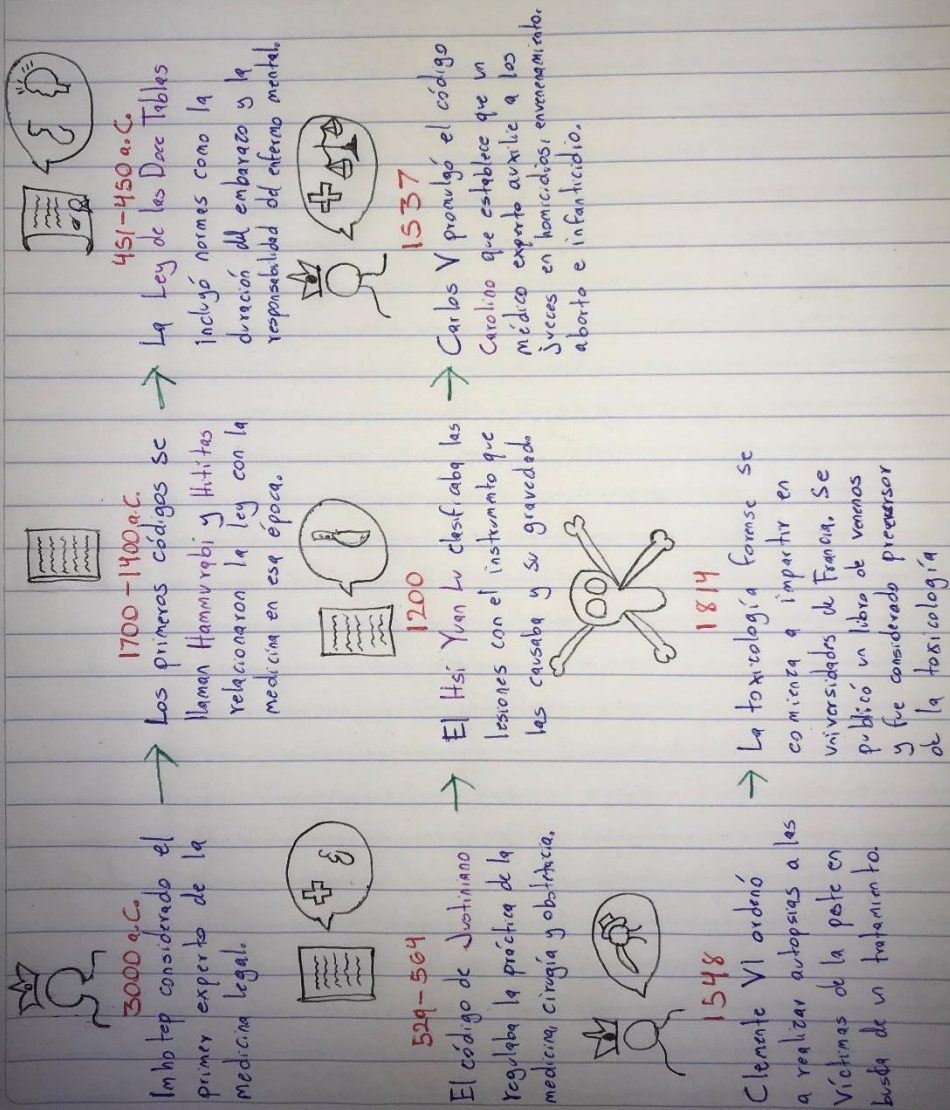 3000 a.C.
Imhotep considerado el
primer experto de la
medicina legal.
1700-1400 a.C.
Los primeros códigos se
llaman Hammurabi y Hititas
relacionaron la ley con la
medicina en esa época.
451-450 a.C.
La Ley de las Doce Tablas
incluyó normas como la
duración del embarazo y la
responsabilidad del enfermo mental.
529-564
El código de Justiniano
regulaba la práctica de la
medicina, cirugía y obstetricia.
1200
El Hsi Yuan Lu clasificaba las
lesiones con el instrumento que
las causaba y su gravedad.
1537
Carlos V promulgó el código
Carolino que establece que un
médico experto auxilie a los
jueces en homicidios, envenenamiento,
aborto e infanticidio.
1548
Clemente VI ordenó
a realizar autopsias a las
víctimas de la peste en
busca de un tratamiento.
1814
La toxicología forense se
comienza a impartir en
universidades de Francia. Se
publicó un libro de venenos
y fue considerado precursor
de la toxicología